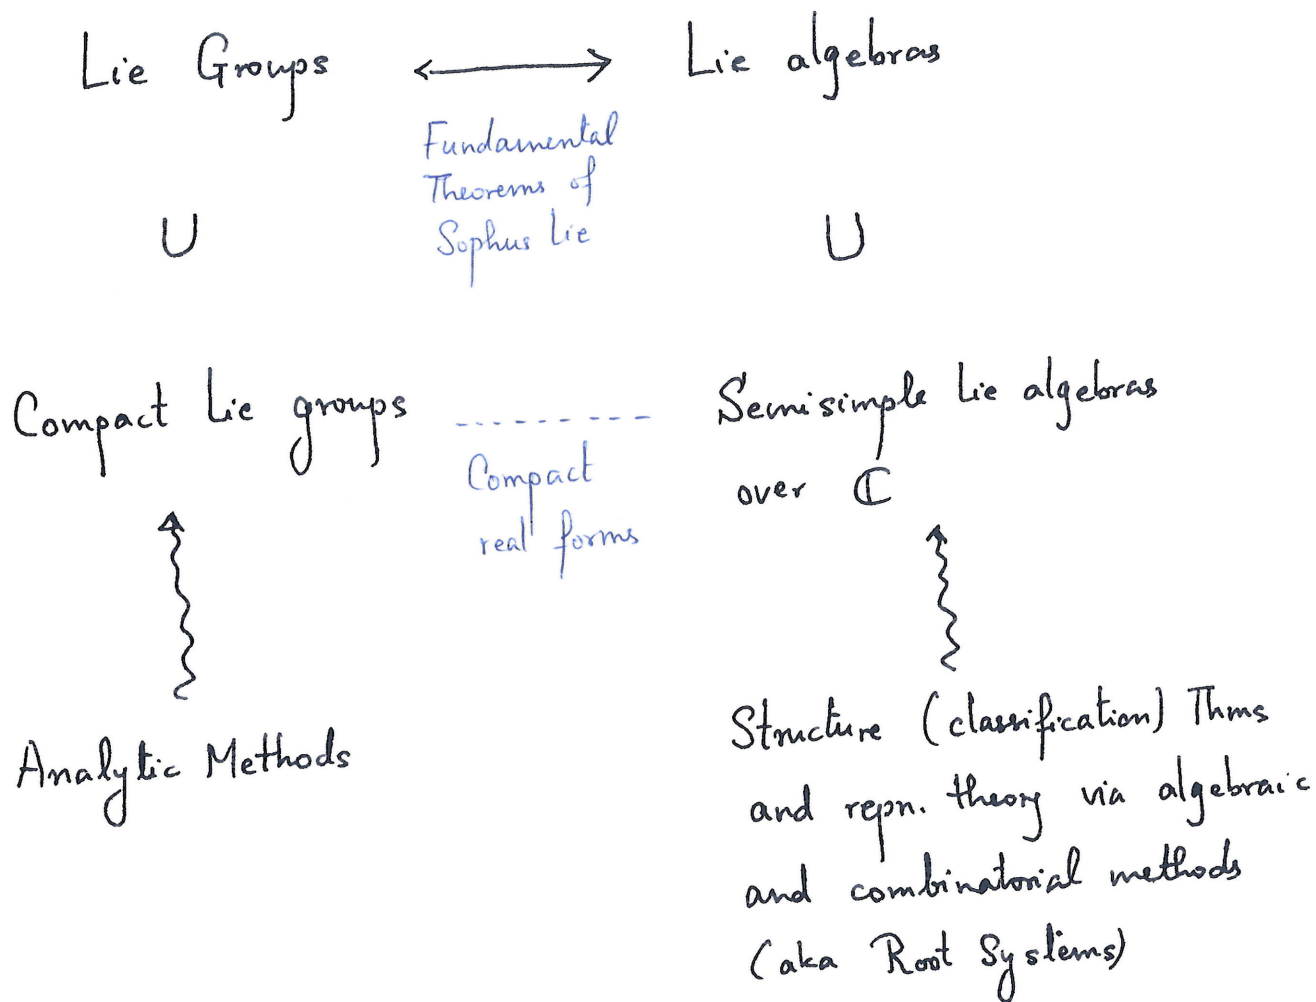 Lie Groups ⟷ Lie algebras
Fundamental
Theorems of
Sophus Lie
∪ ∪
Compact Lie groups
Compact
real forms
Semisimple Lie algebras
over ℂ
Analytic Methods
Structure (classification) Thms
and repn. theory via algebraic
and combinatorial methods
(aka Root Systems)